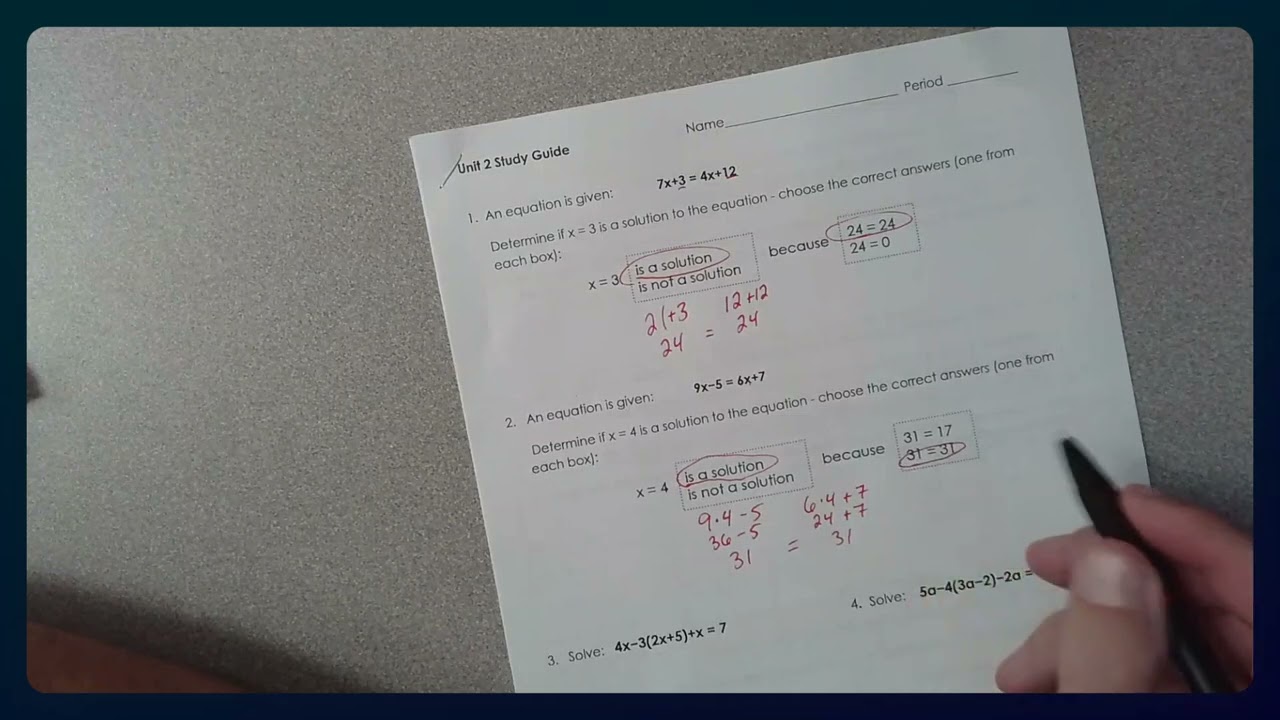 Name____________________ Period ________
Unit 2 Study Guide
1. An equation is given: 7x+3 = 4x+12
Determine if x = 3 is a solution to the equation - choose the correct answers (one from
each box):
x = 3 is a solution because 24 = 24
is not a solution 24 = 0
21+3 12+12
24 = 24
2. An equation is given: 9x-5 = 6x+7
Determine if x = 4 is a solution to the equation - choose the correct answers (one from
each box):
x = 4 is a solution because 31 = 17
is not a solution 31 = 31
9·4-5 6·4+7
36-5 24+7
31 = 31
3. Solve: 4x-3(2x+5)+x = 7
4. Solve: 5a-4(3a-2)-2a =